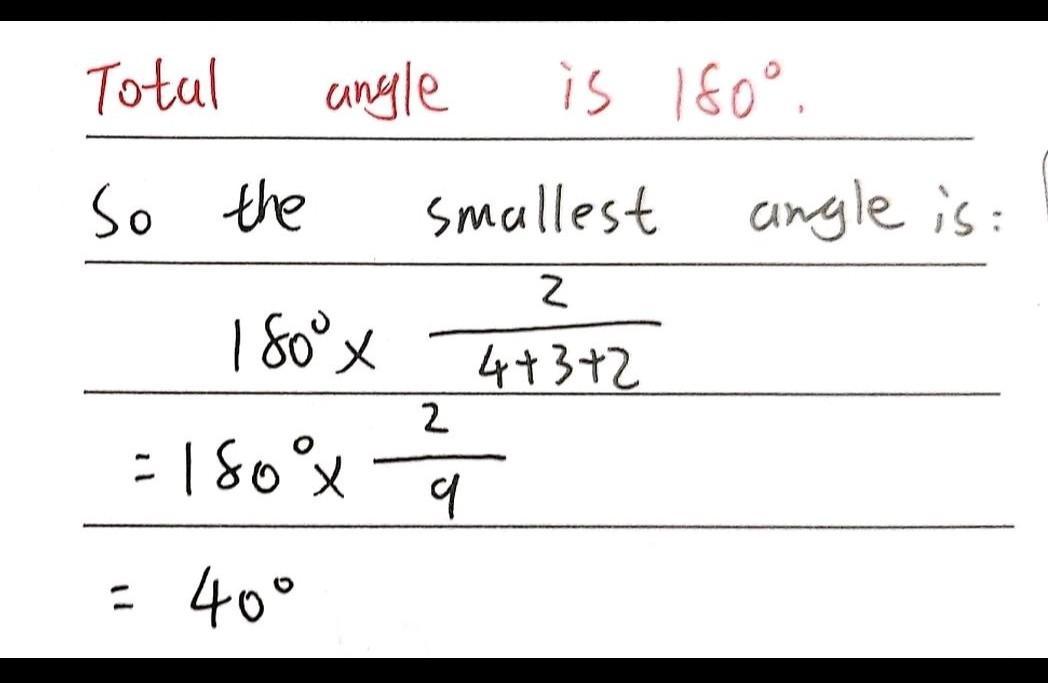 Total angle is 180°.
So the smallest angle is:
180° × 2/(4+3+2)
= 180° × 2/9
= 40°